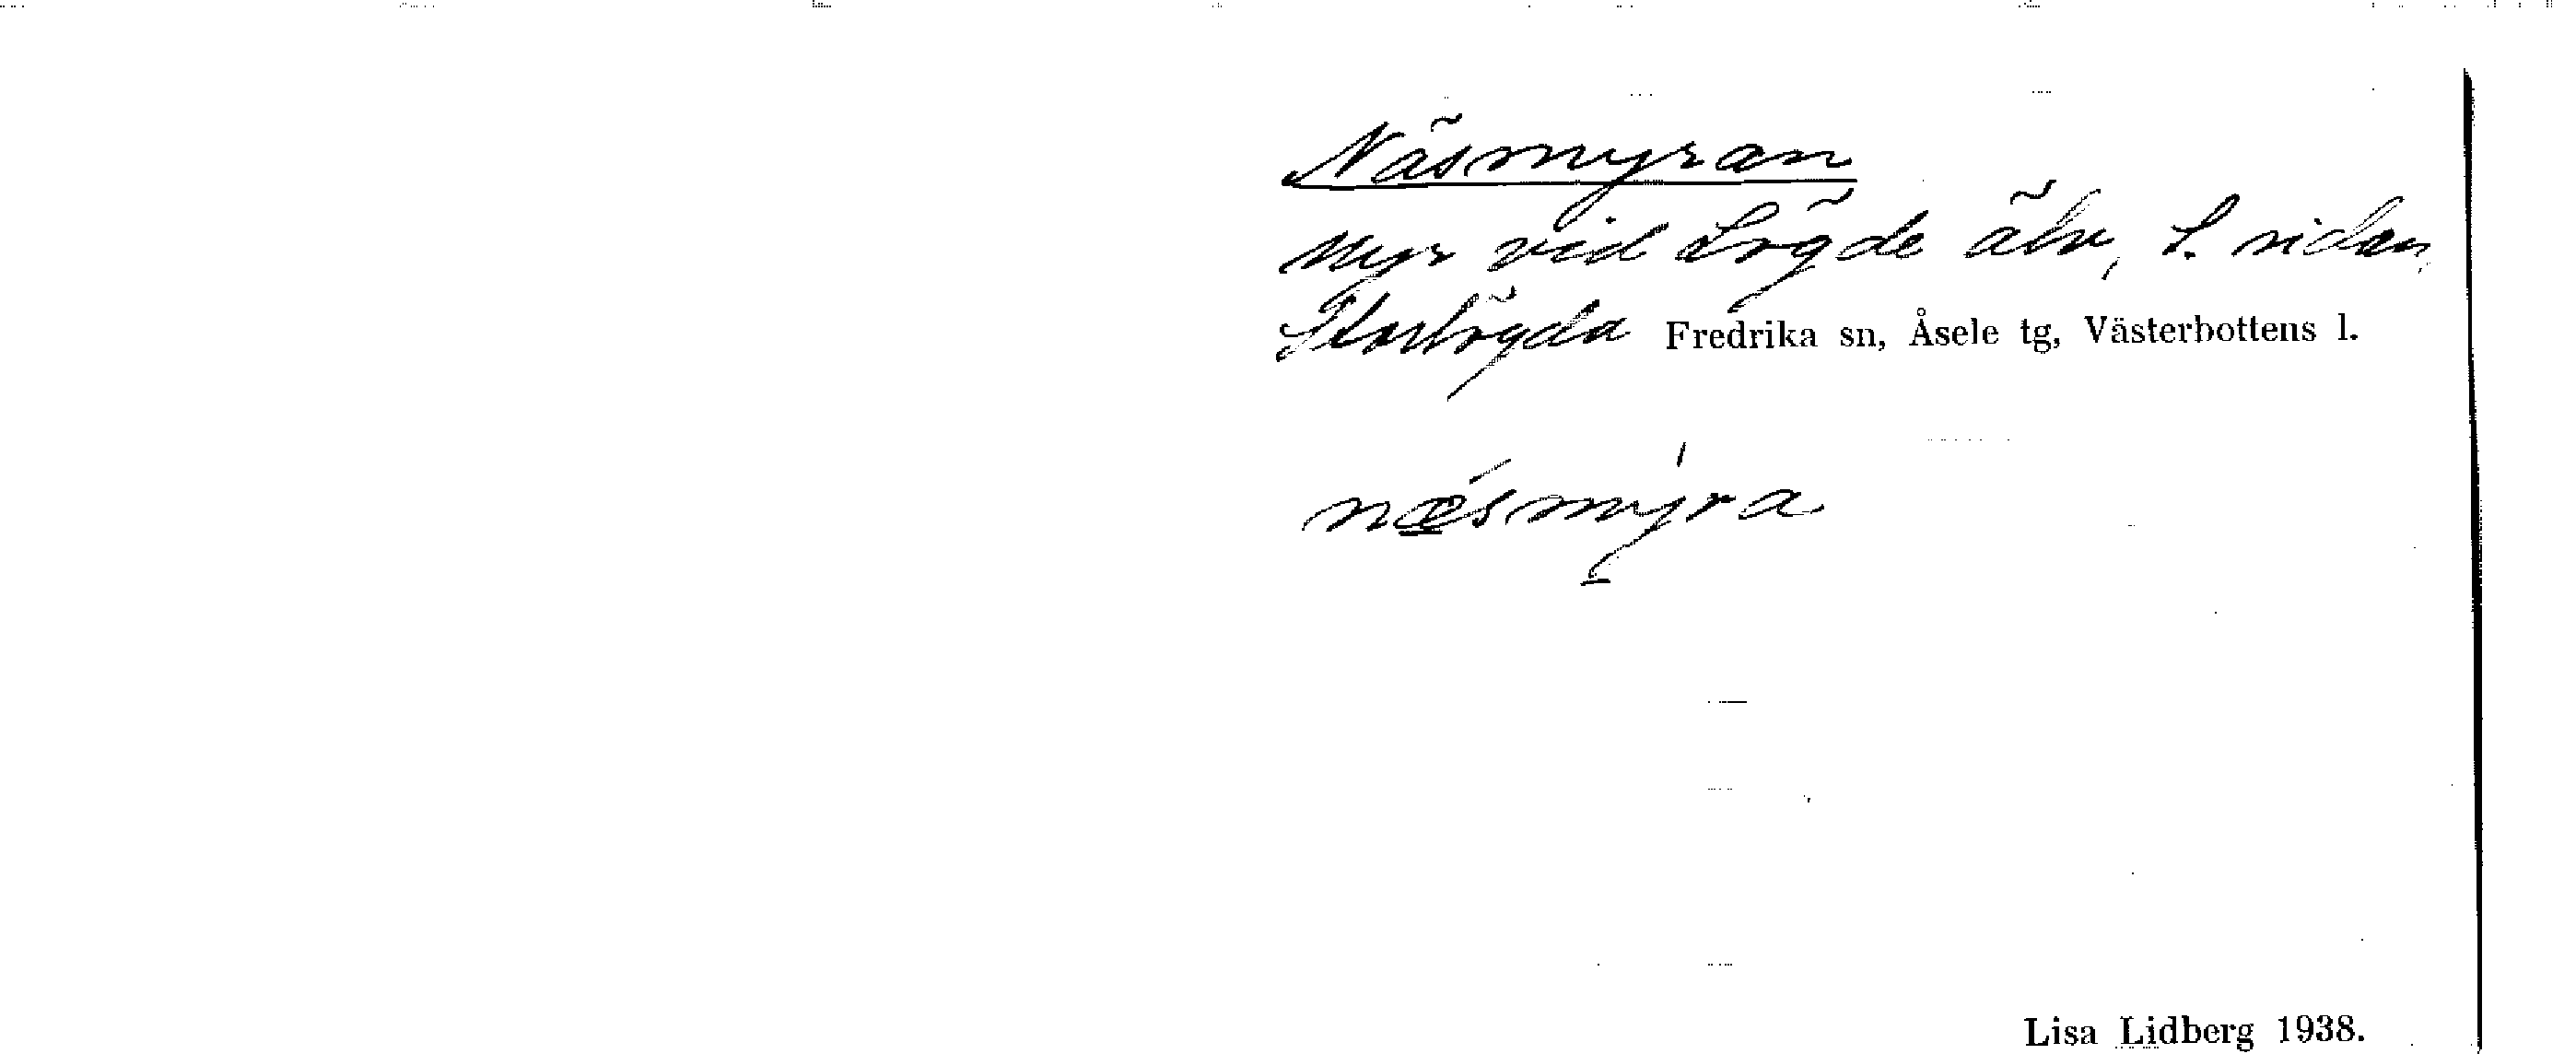 Näsmyran
myr vid Lögde älv, S. sidan,
Storlögda Fredrika sn, Åsele tg, Västerbottens l.
næsmyra
Lisa Lidberg 1938.